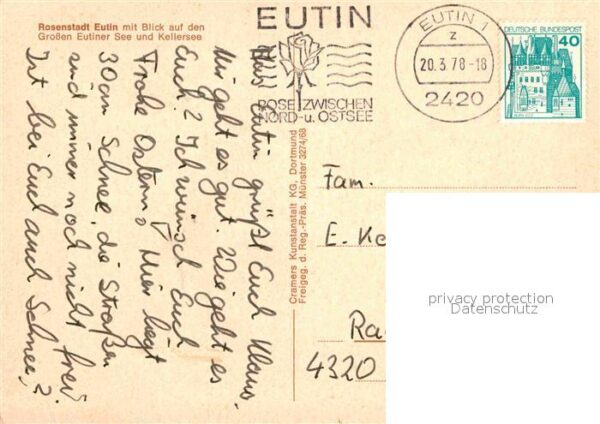 Rosenstadt Eutin mit Blick auf den
Großen Eutiner See und Kellersee
EUTIN
ROSE ZWISCHEN
NORD- u. OSTSEE
EUTIN 1
z
20.3.78-18
2420
DEUTSCHE BUNDESPOST
40
Aus Eutin grüßt Euch Klaus,
Mir geht es gut. Wie geht es
Euch? Ich wünsch Euch
Frohe Ostern! Hier liegt
30 cm Schnee, die Straßen
sind immer noch nicht frei
Ist bei Euch auch Schnee?
Cramers Kunstanstalt KG, Dortmund
Freigeg. d. Reg.-Präs. Münster 3274/68
Fam.
E. Ke
Ra
4320
privacy protection
Datenschutz